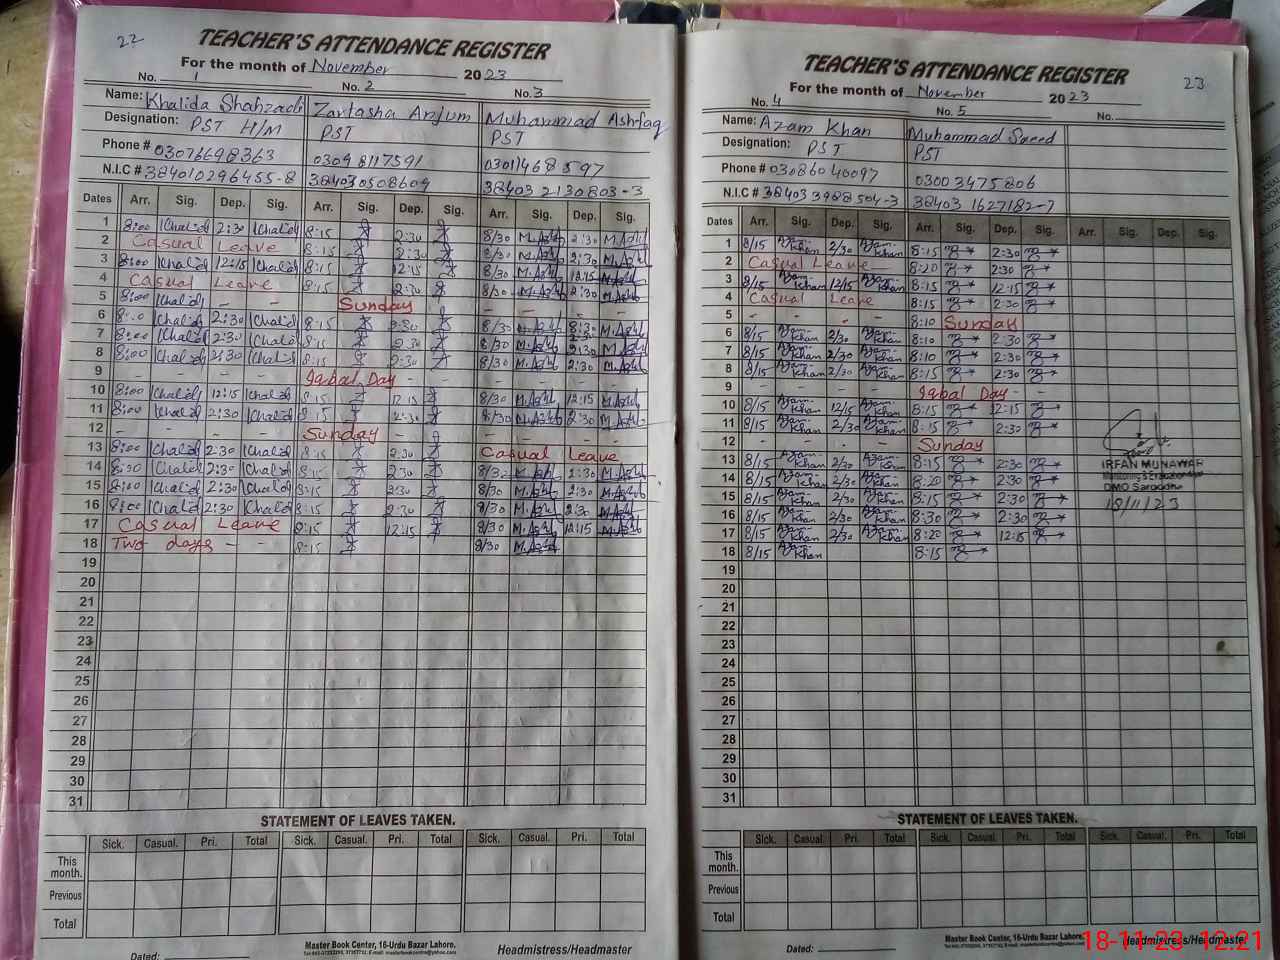 22
TEACHER'S ATTENDANCE REGISTER
For the month of November 2023
No. 1 No. 2 No. 3
Name: Khalida Shahzadi Zartasha Anjum Muhammad Ashfaq
Designation: PST H/M PST PST
Phone # 03076698363 0309 8117591 03011468597
N.I.C # 384010296455-8 384030508609 38403 2130803-3
Dates Arr. Sig. Dep. Sig. Arr. Sig. Dep. Sig. Arr. Sig. Dep. Sig.
1 8:00 Khalid 2:30 Khalid 8:15 2:30 8/30 M.Ashf 2:30 M.Ashf
2 Casual Leave 8:15 2:30 8/30 M.Ashf 2:30 M.Ashf
3 8:00 Khalid 12:15 Khalid 8:15 12:15 8/30 M.Ashf 12:15 M.Ashf
4 Casual Leave 8:15 2:30 8/30 M.Ashf 2:30 M.Ashf
5 8:00 Khalid - - Sunday - - - -
6 8:00 Khalid 2:30 Khalid 8:15 2:30 8/30 M.Ashf 2:30 M.Ashf
7 8:00 Khalid 2:30 Khalid 8:15 2:30 8/30 M.Ashf 2:30 M.Ashf
8 8:00 Khalid 2:30 Khalid 8:15 2:30 8/30 M.Ashf 2:30 M.Ashf
9 - - - - Iqbal Day - - - - -
10 8:00 Khalid 12:15 Khalid 8:15 12:15 8/30 M.Ashf 12:15 M.Ashf
11 8:00 Khalid 2:30 Khalid 8:15 2:30 8/30 M.Ashf 2:30 M.Ashf
12 - - - - Sunday - - - - -
13 8:00 Khalid 2:30 Khalid 8:15 2:30 Casual Leave
14 8:00 Khalid 2:30 Khalid 8:15 2:30 8/30 M.Ashf 2:30 M.Ashf
15 8:00 Khalid 2:30 Khalid 8:15 2:30 8/30 M.Ashf 2:30 M.Ashf
16 8:00 Khalid 2:30 Khalid 8:15 2:30 8/30 M.Ashf 2:30 M.Ashf
17 Casual Leave 8:15 12:15 8/30 M.Ashf 12:15 M.Ashf
18 Two days - - 8:15 8/30 M.Ashf
19
20
21
22
23
24
25
26
27
28
29
30
31
STATEMENT OF LEAVES TAKEN.
Sick. Casual. Pri. Total Sick. Casual. Pri. Total Sick. Casual. Pri. Total
This month.
Previous
Total
Master Book Center, 16-Urdu Bazar Lahore.
Dated: Headmistress/Headmaster
23
TEACHER'S ATTENDANCE REGISTER
For the month of November 2023
No. 4 No. 5 No.
Name: Azam Khan Muhammad Saeed
Designation: PST PST
Phone # 03086040097 0300 3475806
N.I.C # 38403 3988504-3 38403 1627182-7
Dates Arr. Sig. Dep. Sig. Arr. Sig. Dep. Sig. Arr. Sig. Dep. Sig.
1 8/15 Azam Khan 2/30 Azam Khan 8:15 2:30
2 Casual Leave 8:20 2:30
3 8/15 Azam Khan 12/15 Azam Khan 8:15 12:15
4 Casual Leave 8:15 2:30
5 - - - - 8:10 Sunday
6 8/15 Azam Khan 2/30 Azam Khan 8:10 2:30
7 8/15 Azam Khan 2/30 Azam Khan 8:10 2:30
8 8/15 Azam Khan 2/30 Azam Khan 8:15 2:30
9 - - - - Iqbal Day -
10 8/15 Azam Khan 12/15 Azam Khan 8:15 12:15
11 8/15 Azam Khan 2/30 Azam Khan 8:15 2:30
12 - - - - Sunday
13 8/15 Azam Khan 2/30 Azam Khan 8:15 2:30
14 8/15 Azam Khan 2/30 Azam Khan 8:20 2:30
15 8/15 Azam Khan 2/30 Azam Khan 8:15 2:30
16 8/15 Azam Khan 2/30 Azam Khan 8:30 2:30
17 8/15 Azam Khan 2/30 Azam Khan 8:20 12:15
18 8/15 Azam Khan 8:15
IRFAN MUNAWAR
DMO Sargodha
18/11/23
19
20
21
22
23
24
25
26
27
28
29
30
31
STATEMENT OF LEAVES TAKEN.
Sick. Casual. Pri. Total Sick. Casual. Pri. Total Sick. Casual. Pri. Total
This month.
Previous
Total
Master Book Center, 16-Urdu Bazar Lahore.
Dated: Headmistress/Headmaster
18-11-23 12:21